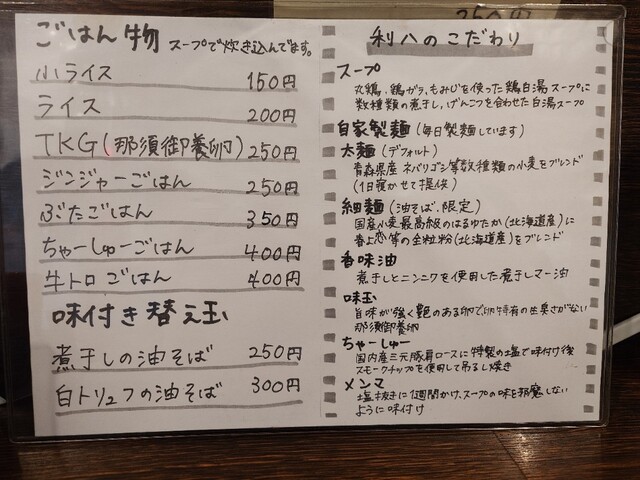 ごはん物 スープで炊き込んでます。
小ライス 150円
ライス 200円
TKG(那須御養卵) 250円
ジンジャーごはん 250円
ぶたごはん 350円
ちゃーしゅーごはん 400円
牛トロごはん 400円
味付き替え玉
煮干しの油そば 250円
白トリュフの油そば 300円
利八のこだわり
スープ
丸鶏、鶏ガラ、もみじを使った鶏白湯スープに
数種類の煮干し、げんこつを合わせた白湯スープ
自家製麺(毎日製麺しています)
太麺(デフォルト)
青森県産ネバリゴシ等数種類の小麦をブレンド
(1日寝かせて提供)
細麺(油そば、限定)
国産小麦最高級のはるゆたか(北海道産)に
春よ恋等の全粒粉(北海道産)をブレンド
香味油
煮干しとニンニクを使用した煮干しマー油
味玉
旨味が強く艶のある卵で卵特有の生臭さがない
那須御養卵
ちゃーしゅー
国内産三元豚肩ロースに特製の塩で味付け後
スモークチップを使用して吊るし焼き
メンマ
塩抜きに1週間かけ、スープの味を邪魔しない
ように味付け